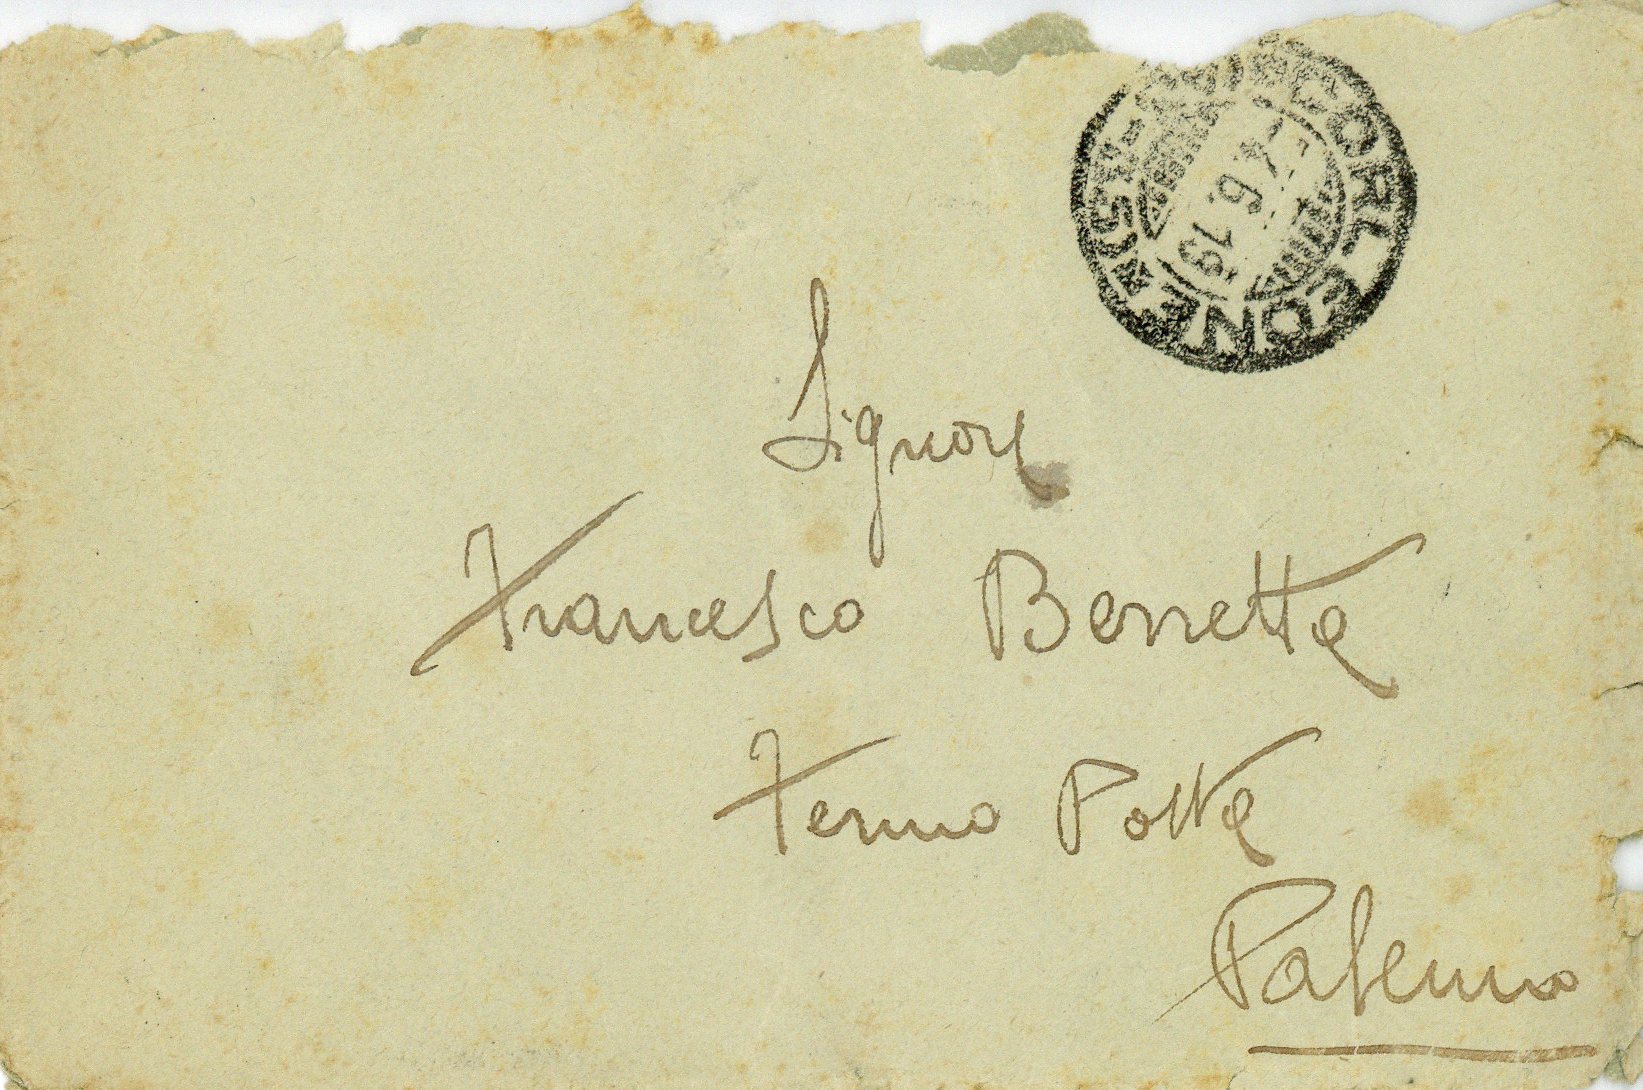 CORLEONE
6.19
Signore
Francesco Berretta
Fermo Posta
Palermo